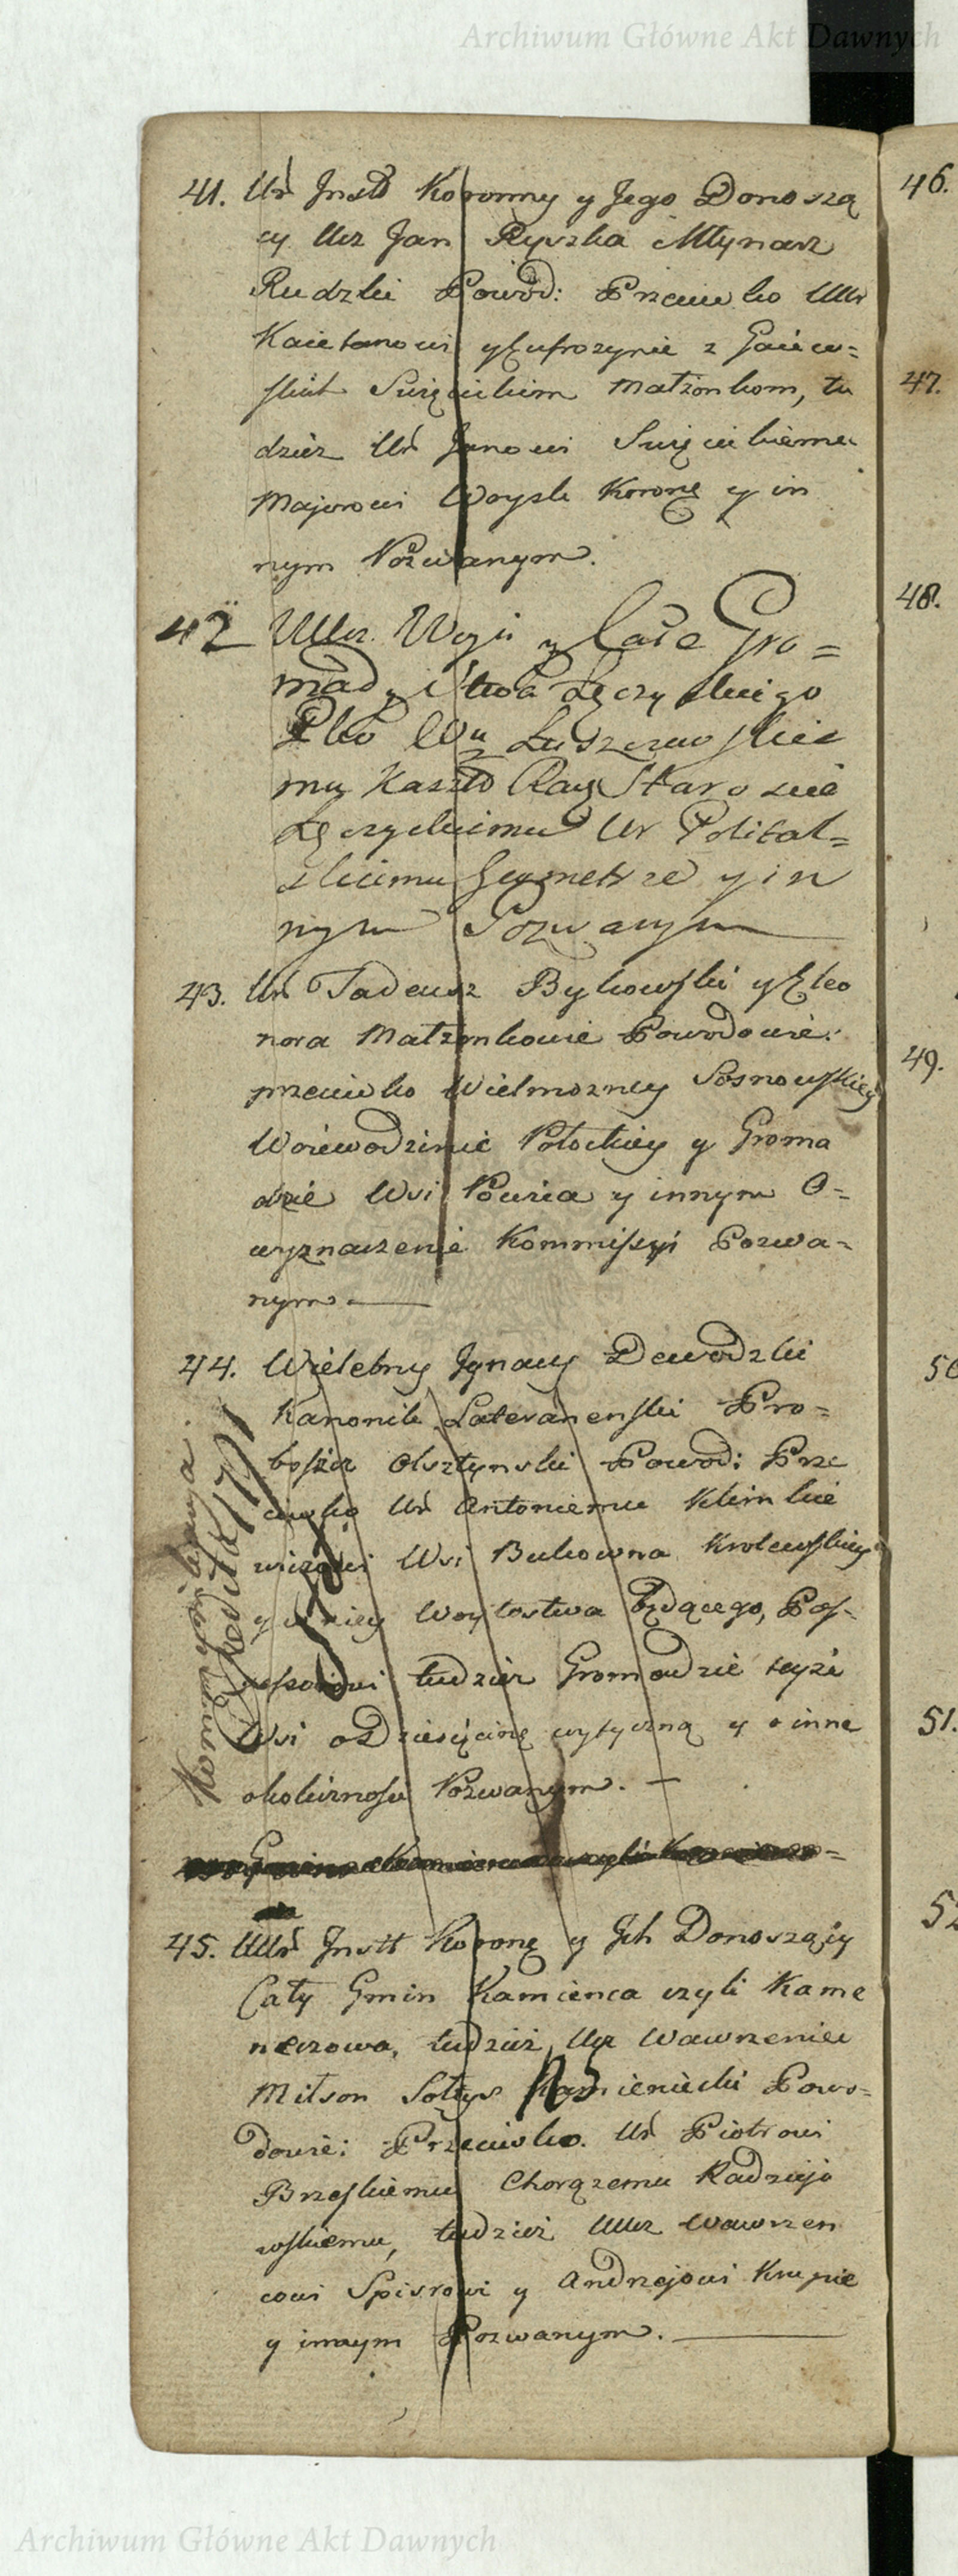 Archiwum Główne Akt Dawnych
41. Ur Instt Koronny y Jego Donoszą
cy Ucz Jan Ryszka Młynarz
Rudzki Powod: Przeciwko Uur
Kaietanowi y Eufrozynie z Gaiew=
skich Swięcickim Małżonkom, tu
dzież Ur Janowi Swięcickiemu
Majorowi Woysk Koronę y in
nym Pozwanym.
42 Uucz. Woyci y Całe Gro=
mady Stwa Łęczyckiego
Pko Wu Łuszczewskie
mu Kasztt Raę Staroscie
Łęczyckiemu Ur Politał=
skiemu Geometrze y in
nym Pozwanym
43. Ur Tadeusz Bykowski y Eleo
nora Małżonkowie Powodowie:
przeciwko Wielmozney Sosnowskiey
Woiewodzinie Połockiey y Groma
dzie Wsi Pawia y innym O=
wyznaczenie Kommissyi Pozwa=
nym
44. Wielebny Ignacy Dewodzki
Kanonik Lateranenski Pro=
boszcz Olsztynski Powod: Prze
ciwko Ur Antoniemu Klimkie
wiczowi Wsi Bukowna Krolewskiey
y w niey Woytostwa będącego, Pos=
sessorowi tudzież Gromadzie teyże
Wsi o Dziesięcinę wytyczną y o inne
okolicznosci Pozwanym.
45. Uur Instt Koronę y Ich Donoszący
Cały Gmin Kamienca czyli Kame
neczowa, tudzież Ucz Wawrzeniec
Mitson Sołtys Kamieniecki Powo=
dowie: Przeciwko. Ur Piotrowi
Brzeskiemu Chorązemu Radziejo
wskiemu, tudzież Uucz Wawrzen
cowi Spisrowi y Andrzejowi Krupie
y innym Pozwanym.
46.
47.
48.
49.
50
51.
52
Archiwum Główne Akt Dawnych